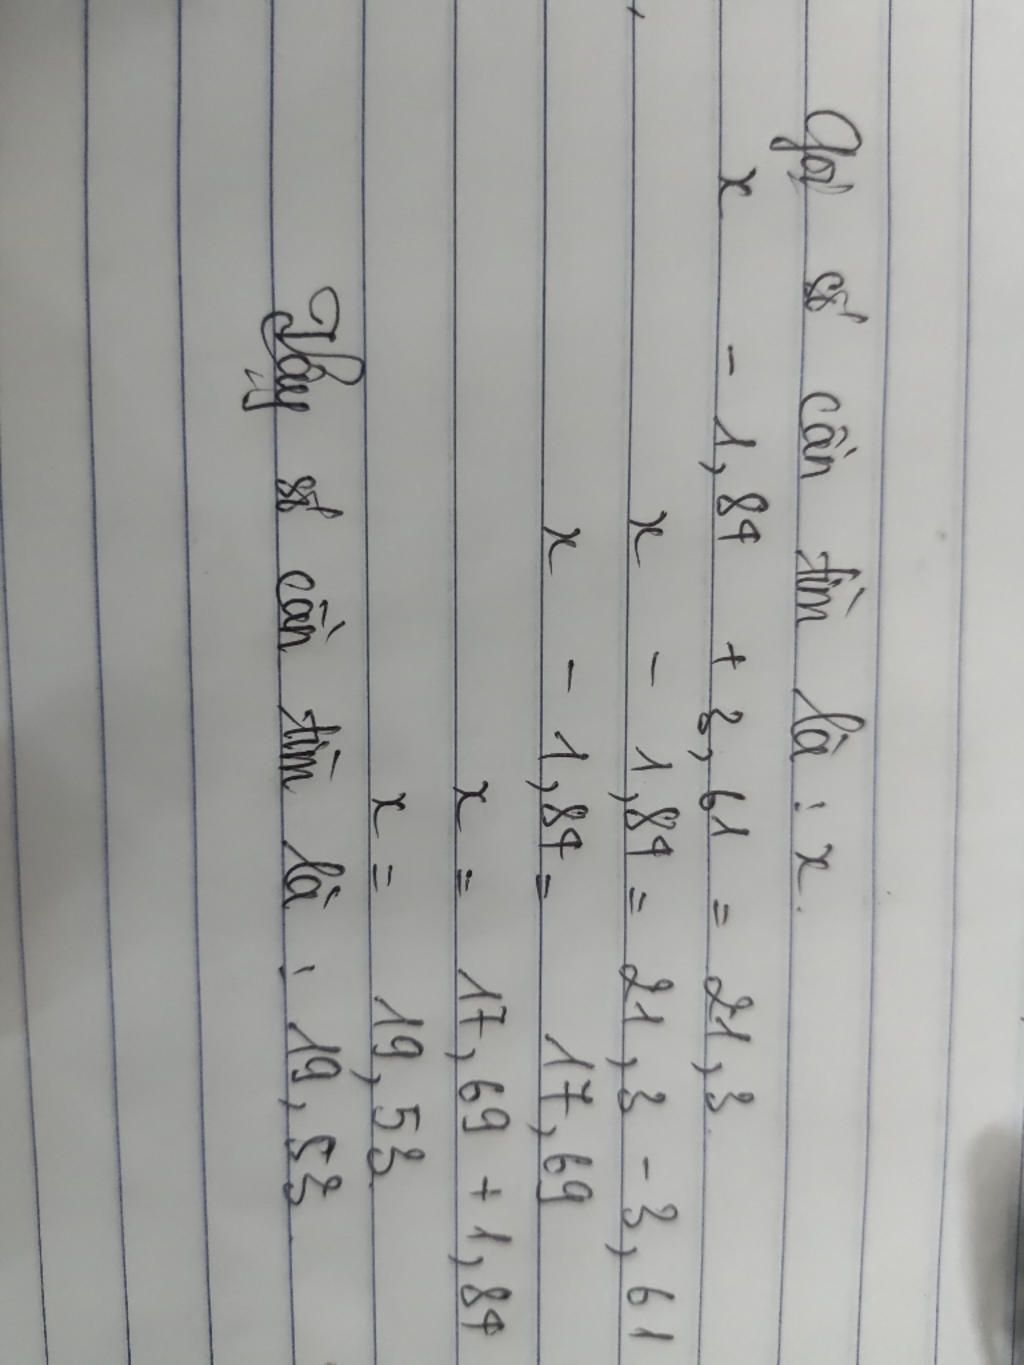 Gọi số cần tìm là : x.
x - 1,84 + 3,61 = 21,3.
x - 1,84 = 21,3 - 3,61
x - 1,84 = 17,69
x = 17,69 + 1,84
x = 19,53.
Vậy số cần tìm là : 19,53.